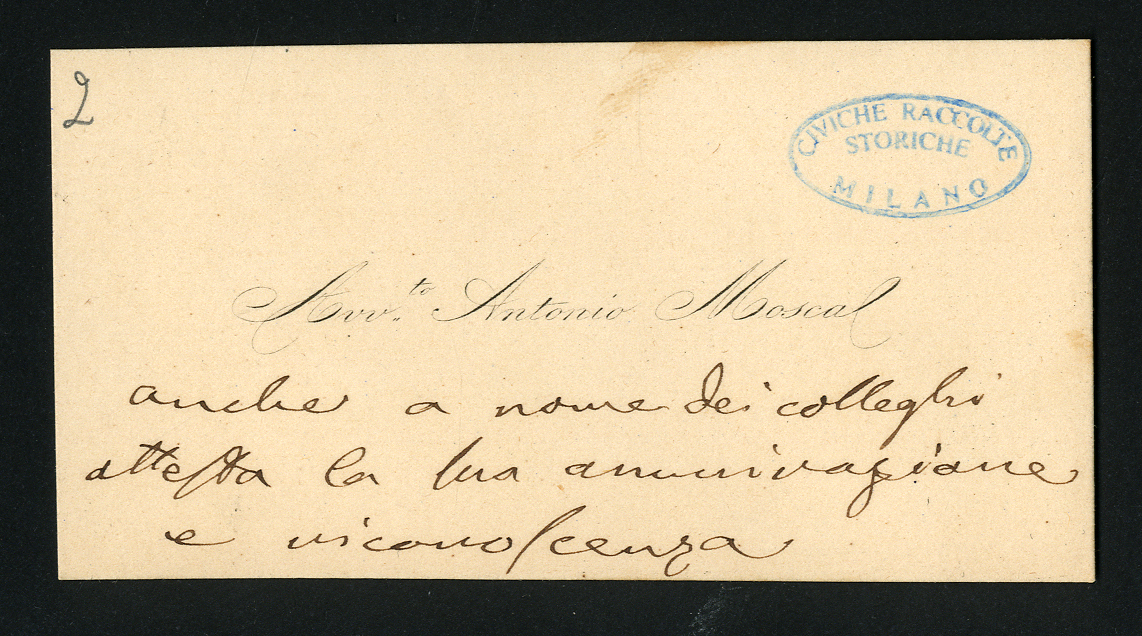 2
CIVICHE RACCOLTE
STORICHE
MILANO
Avv.to Antonio Moscal
anche a nome dei colleghi
attesta la sua ammirazione
e riconoscenza